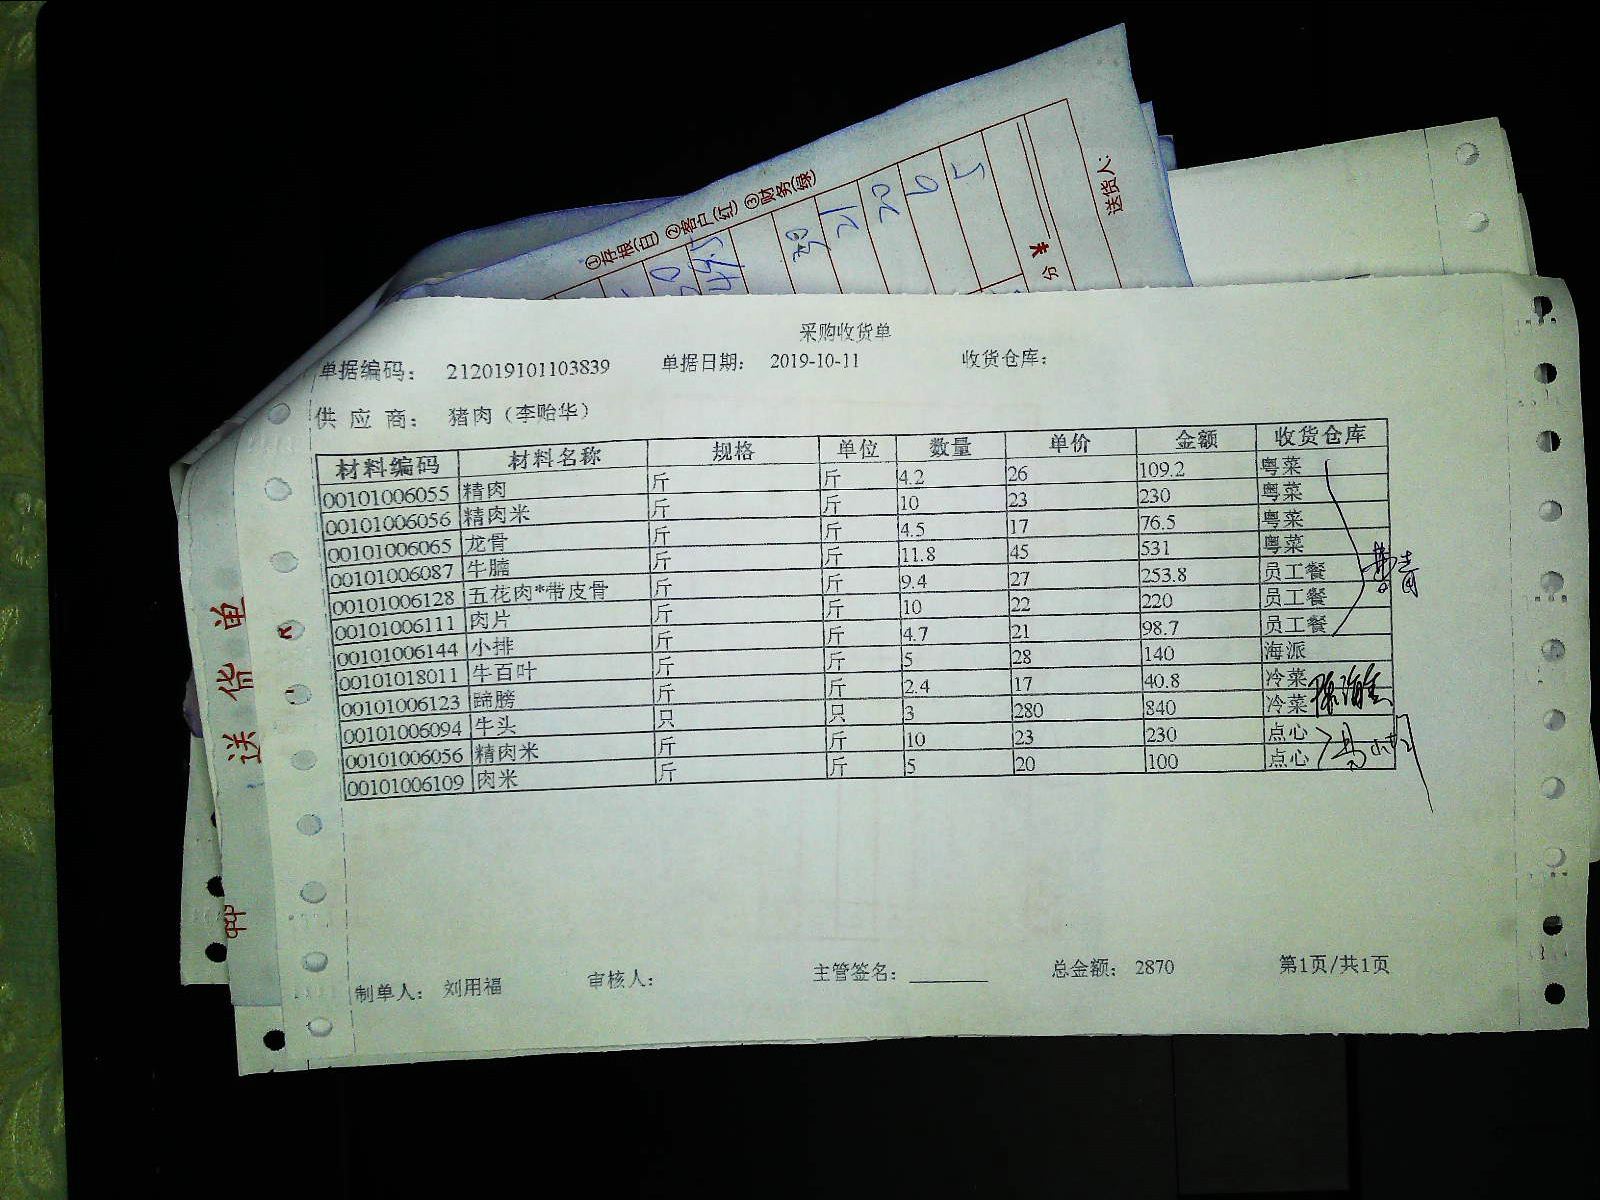 ①存根(白) ②客户(红) ③财务(绿)
20
49.5
21
20
6
5
分
送货人:
送货单
采购收货单
单据编码: 212019101103839 单据日期: 2019-10-11 收货仓库:
供应商: 猪肉（李贻华）
材料编码 材料名称 规格 单位 数量 单价 金额 收货仓库
00101006055 精肉 斤 斤 4.2 26 109.2 粤菜
00101006056 精肉米 斤 斤 10 23 230 粤菜
00101006065 龙骨 斤 斤 4.5 17 76.5 粤菜
00101006087 牛腩 斤 斤 11.8 45 531 粤菜
00101006128 五花肉*带皮骨 斤 斤 9.4 27 253.8 员工餐
00101006111 肉片 斤 斤 10 22 220 员工餐
00101006144 小排 斤 斤 4.7 21 98.7 员工餐
00101018011 牛百叶 斤 斤 5 28 140 海派
00101006123 蹄膀 斤 斤 2.4 17 40.8 冷菜
00101006094 牛头 只 只 3 280 840 冷菜
00101006056 精肉米 斤 斤 10 23 230 点心
00101006109 肉米 斤 斤 5 20 100 点心
制单人: 刘用福 审核人: 主管签名: 总金额: 2870 第1页/共1页